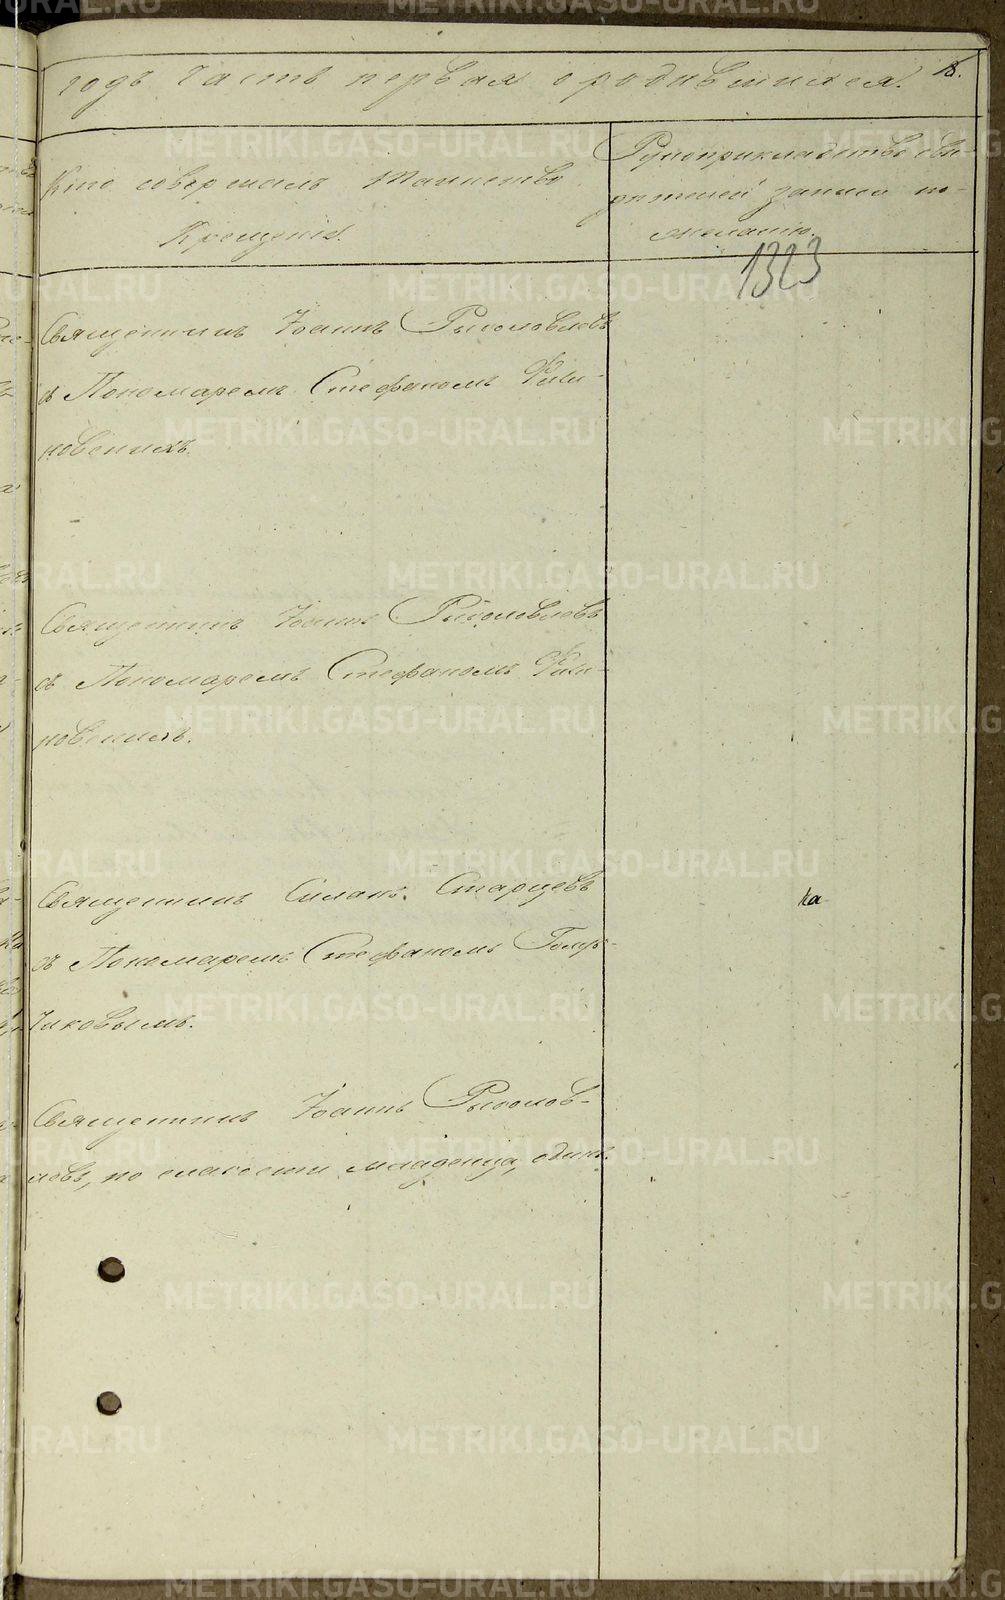 годъ часть первая о родившихся.
18.
Кто совершалъ таинство
Крещенія.
Рукоприкладство сви-
дѣтелей записи по
желанію.
1323
Священникъ Іоаннъ Рысоловлевъ
съ Пономаремъ Стефаномъ
Священникъ Іоаннъ Рысоловлевъ
съ Пономаремъ Стефаномъ
Священникъ Силанъ Старцевъ
съ Пономаремъ Стефаномъ
чиковымъ.
Священникъ Іоаннъ
левъ, по слабости младенца, одинъ.
на
METRIKI.GASO-URAL.RU